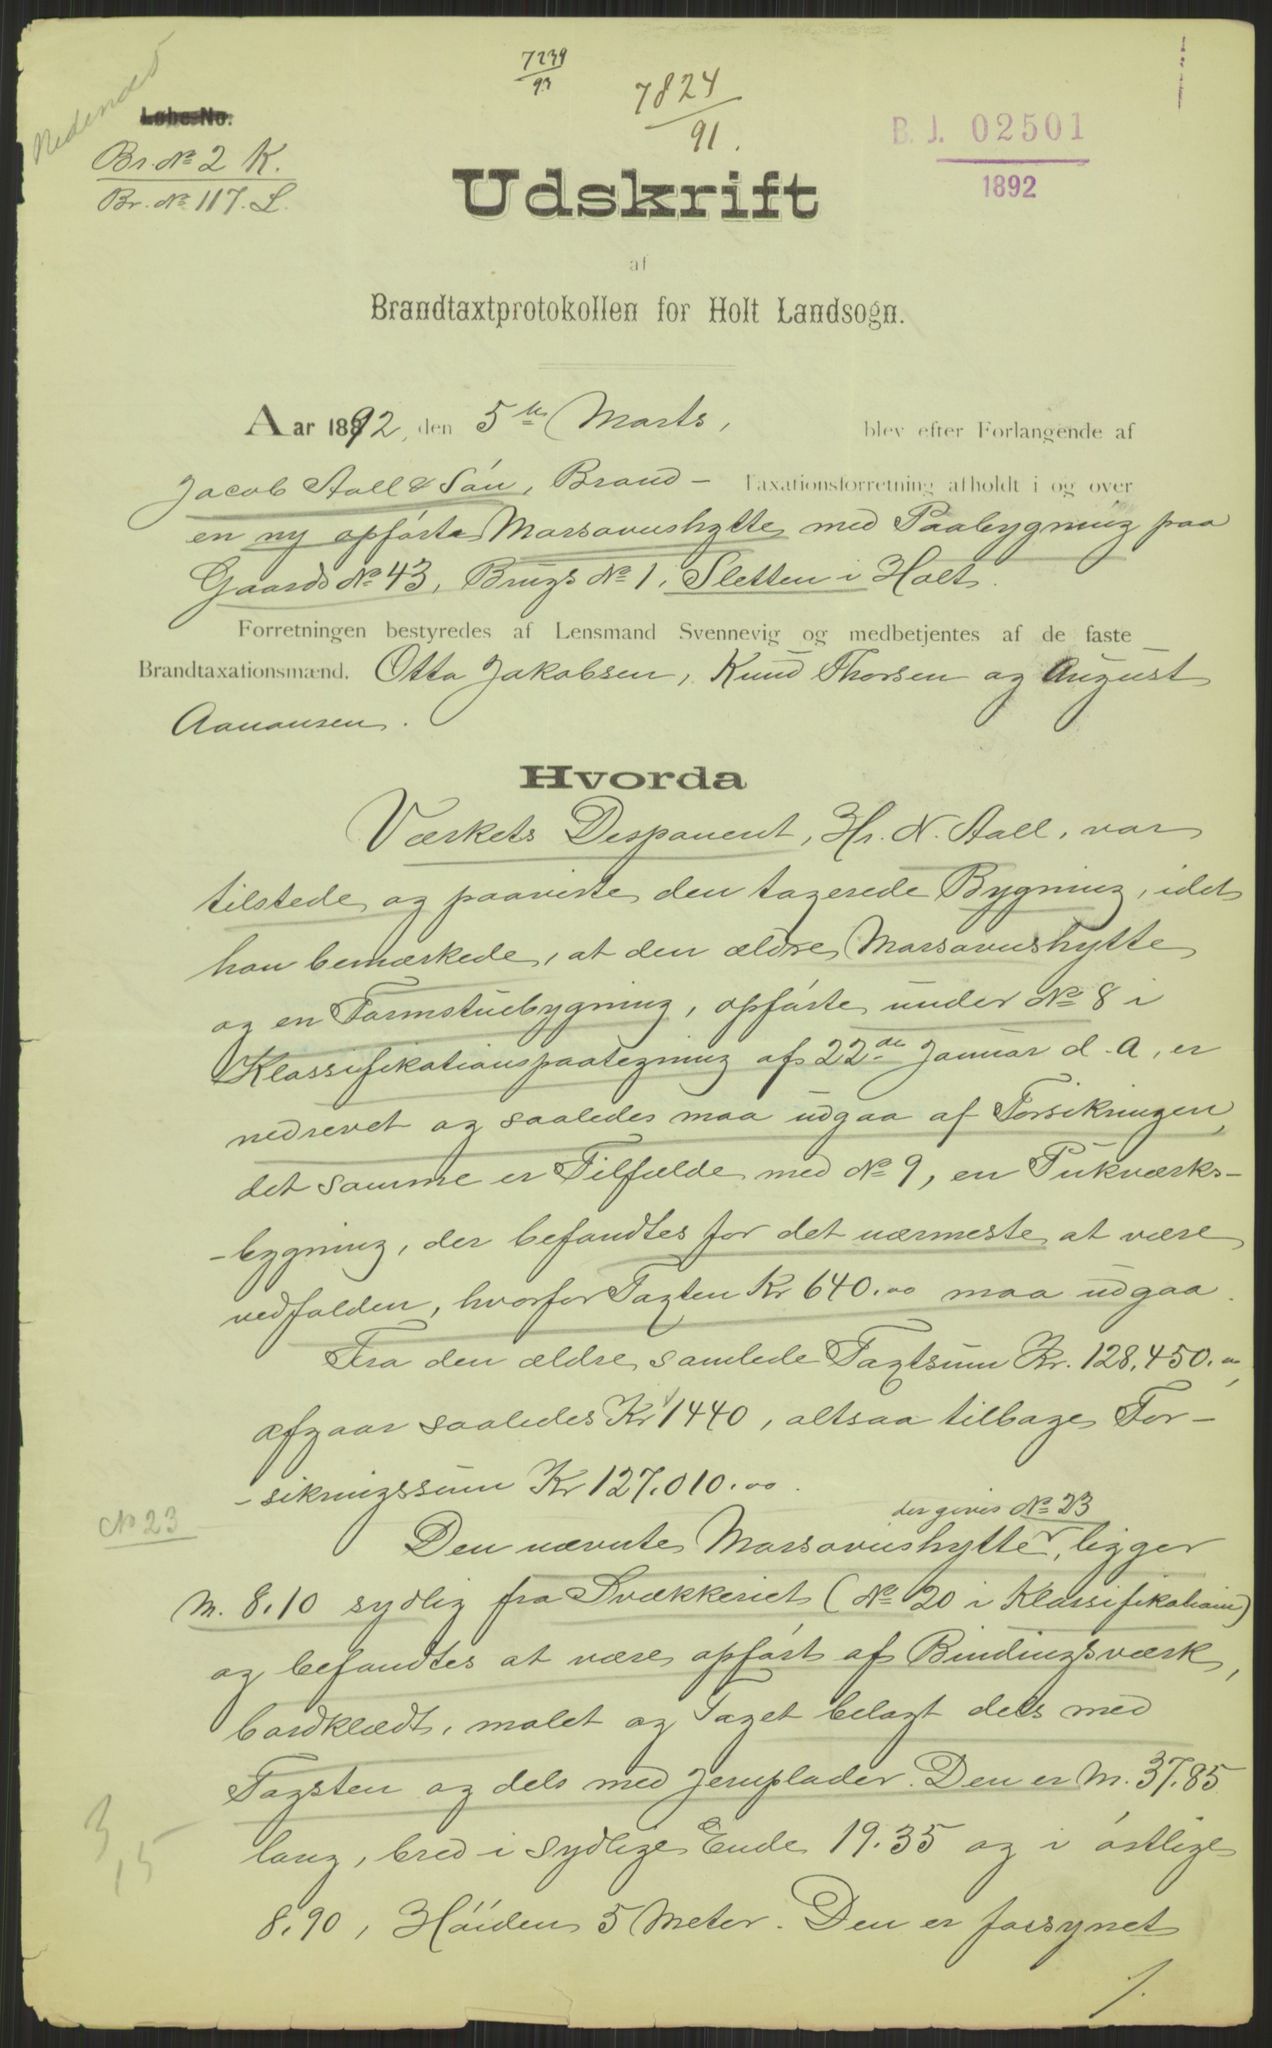 Nedenes
7239
93
7824
91.
B. J. 02501
1892
Løbe-No.
Br. No 2 K.
Br. No 117. L.
Udskrift
af
Brandtaxtprotokollen for Holt Landsogn.
Aar 1892, den 5te Marts, blev efter Forlangende af
Jacob Aall & Søn, Brand- Taxationsforretning afholdt i og over
en ny opførte Marsovnshytte med Paabygning paa
Gaards No 43, Brugs No 1, Sletten i Holt.
Forretningen bestyredes af Lensmand Svennevig og medbetjentes af de faste
Brandtaxationsmænd. Otto Jakobsen, Knud Thorsen og August
Aanonsen.
Hvorda
Værkets Desponent, Hr. N. Aall, var
tilstede og paaviste den taxerede Bygning, idet
han bemærkede, at den ældre Marsovnshytte
og en Formstuebygning, opførte under No 8 i
Klassifikationspaategning af 22de Januar d. A, er
nedrevet og saaledes maa udgaa af Forsikringen,
det samme er Tilfælde med No 9, en Pukværks-
-bygning, der befandtes for det nærmeste at være
nedfalden, hvorfor Taxten Kr 640.00 maa udgaa.
Fra den ældre samlede Taxtsum Kr. 128.450.00,
afgaar saaledes Kr 1440, altsaa tilbage For-
-sikringssum Kr 127.010.00.
No 23
der gives No 23
Den nævnte Marsovnshytte, ligger
M. 8.10 sydlig fra Svækkeriet (No 20 i Klassifikation)
og befandtes at være opført af Bindingsværk,
bordklædt, malet og Taget belagt dels med
Tagsten og dels med Jernplader. Den er M. 37.85
lang, bred i sydlige Ende 19.35 og i østlige
8.90, Høiden 5 Meter. Den er forsynet
3
15
/.